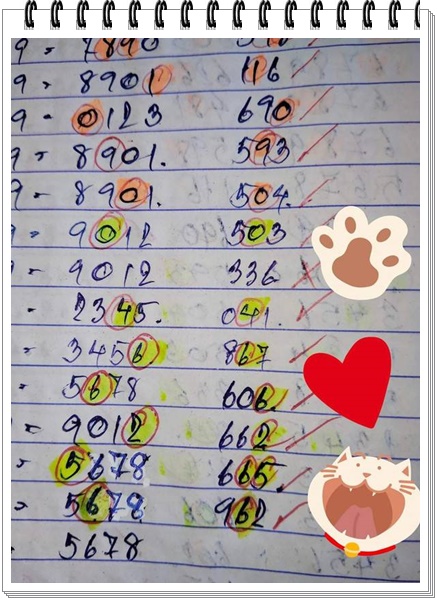 9 = 8901 116
9 = 0123 690
9 = 8901. 593
9 = 8901. 504.
= 9012 503
= 9012 336
= 2345. 041.
= 3456 867
= 5678 606.
= 9012 662
= 5678 665
= 5678 962
5678